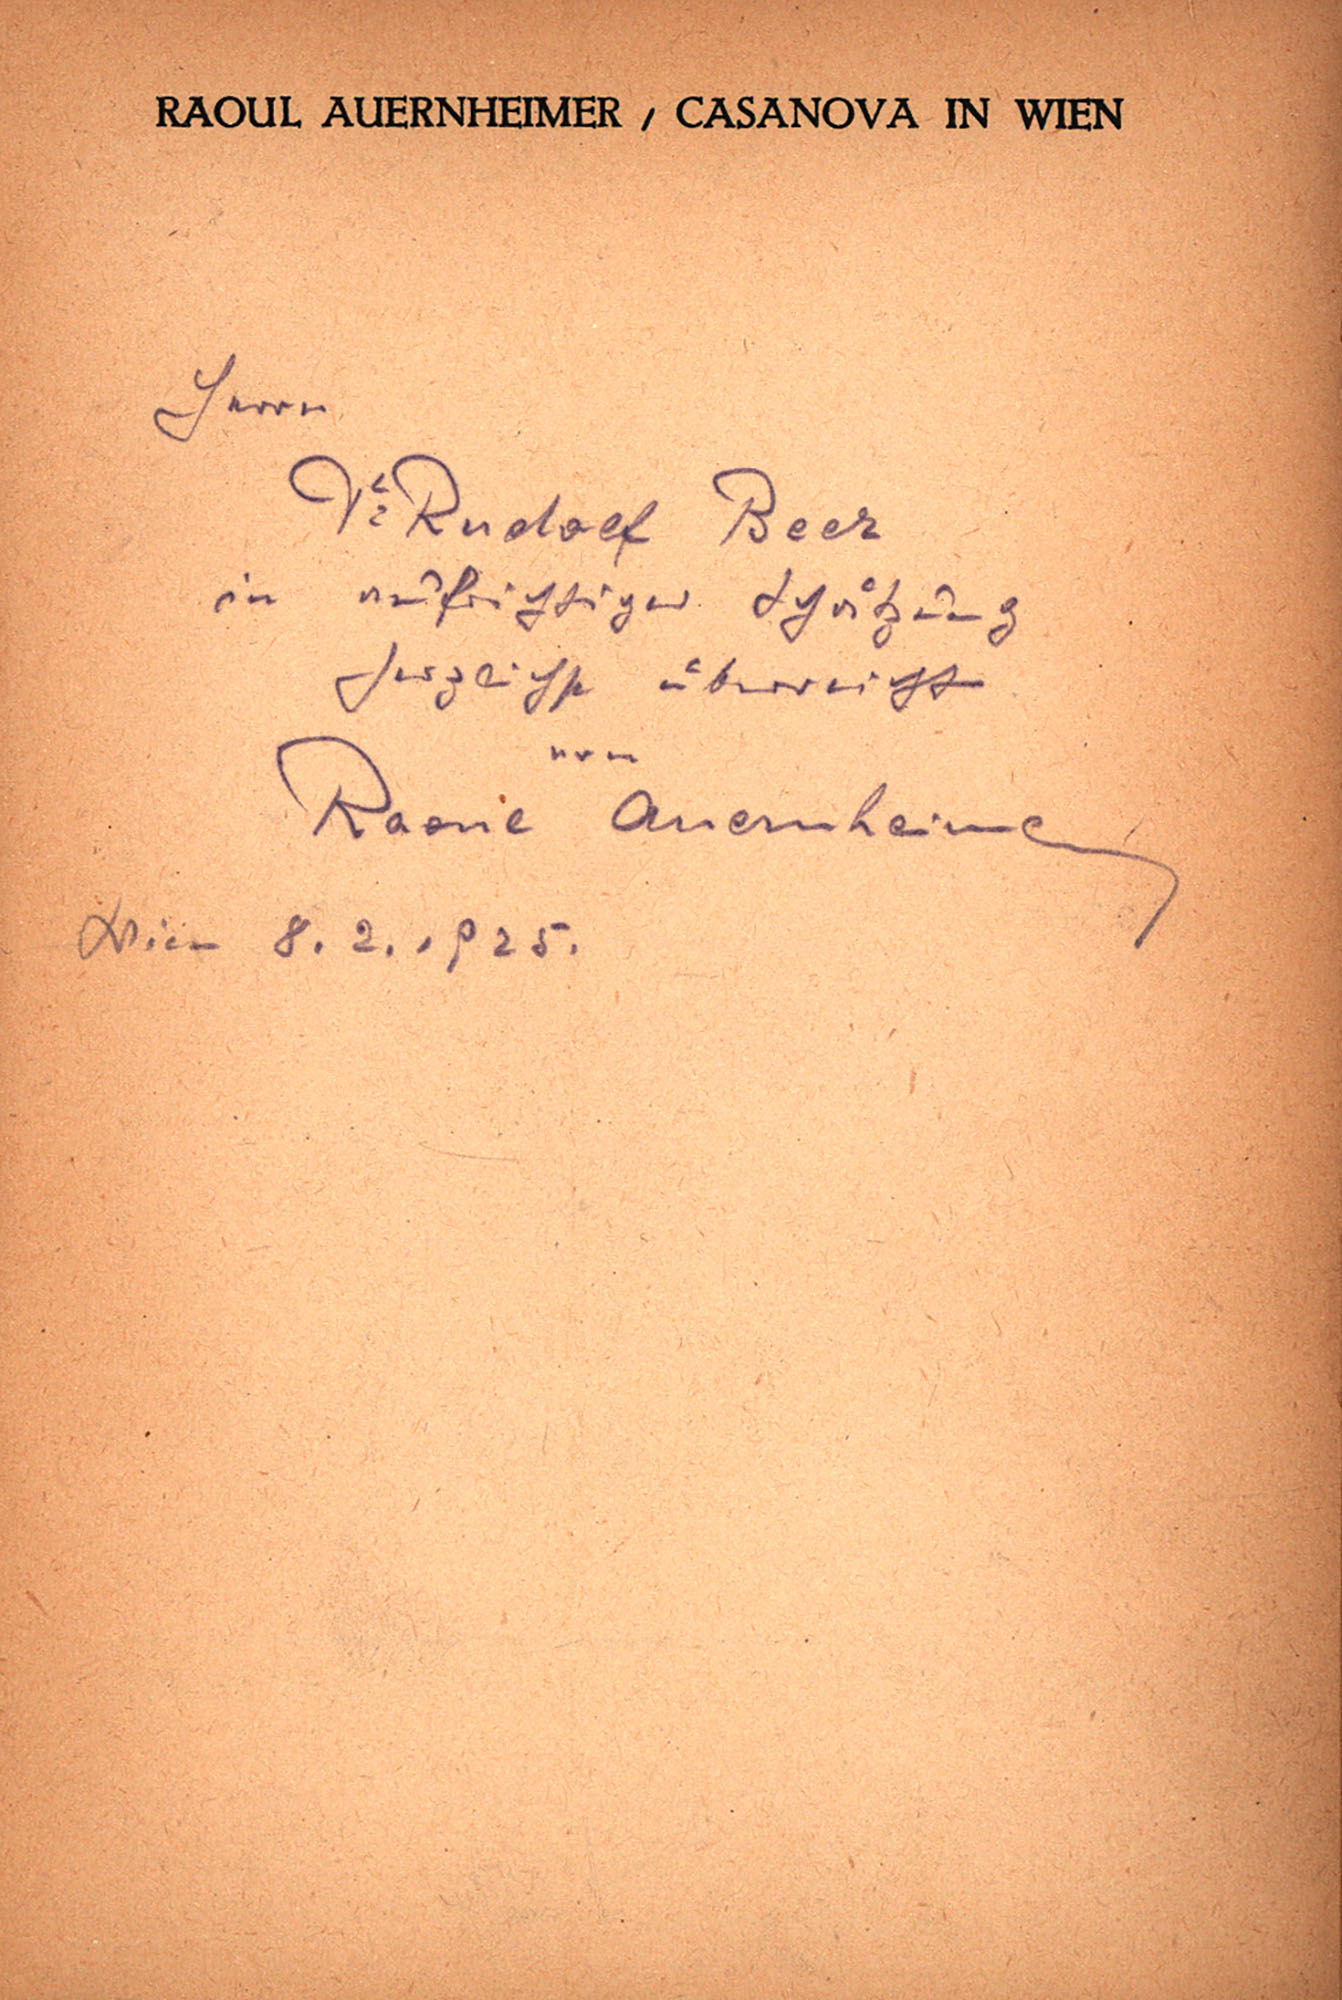 RAOUL AUERNHEIMER / CASANOVA IN WIEN
Herrn
Dr Rudolf Beer
in aufrichtiger Schätzung
herzlichst überreicht
von
Raoul Auernheimer
Wien 8. 2. 1925.